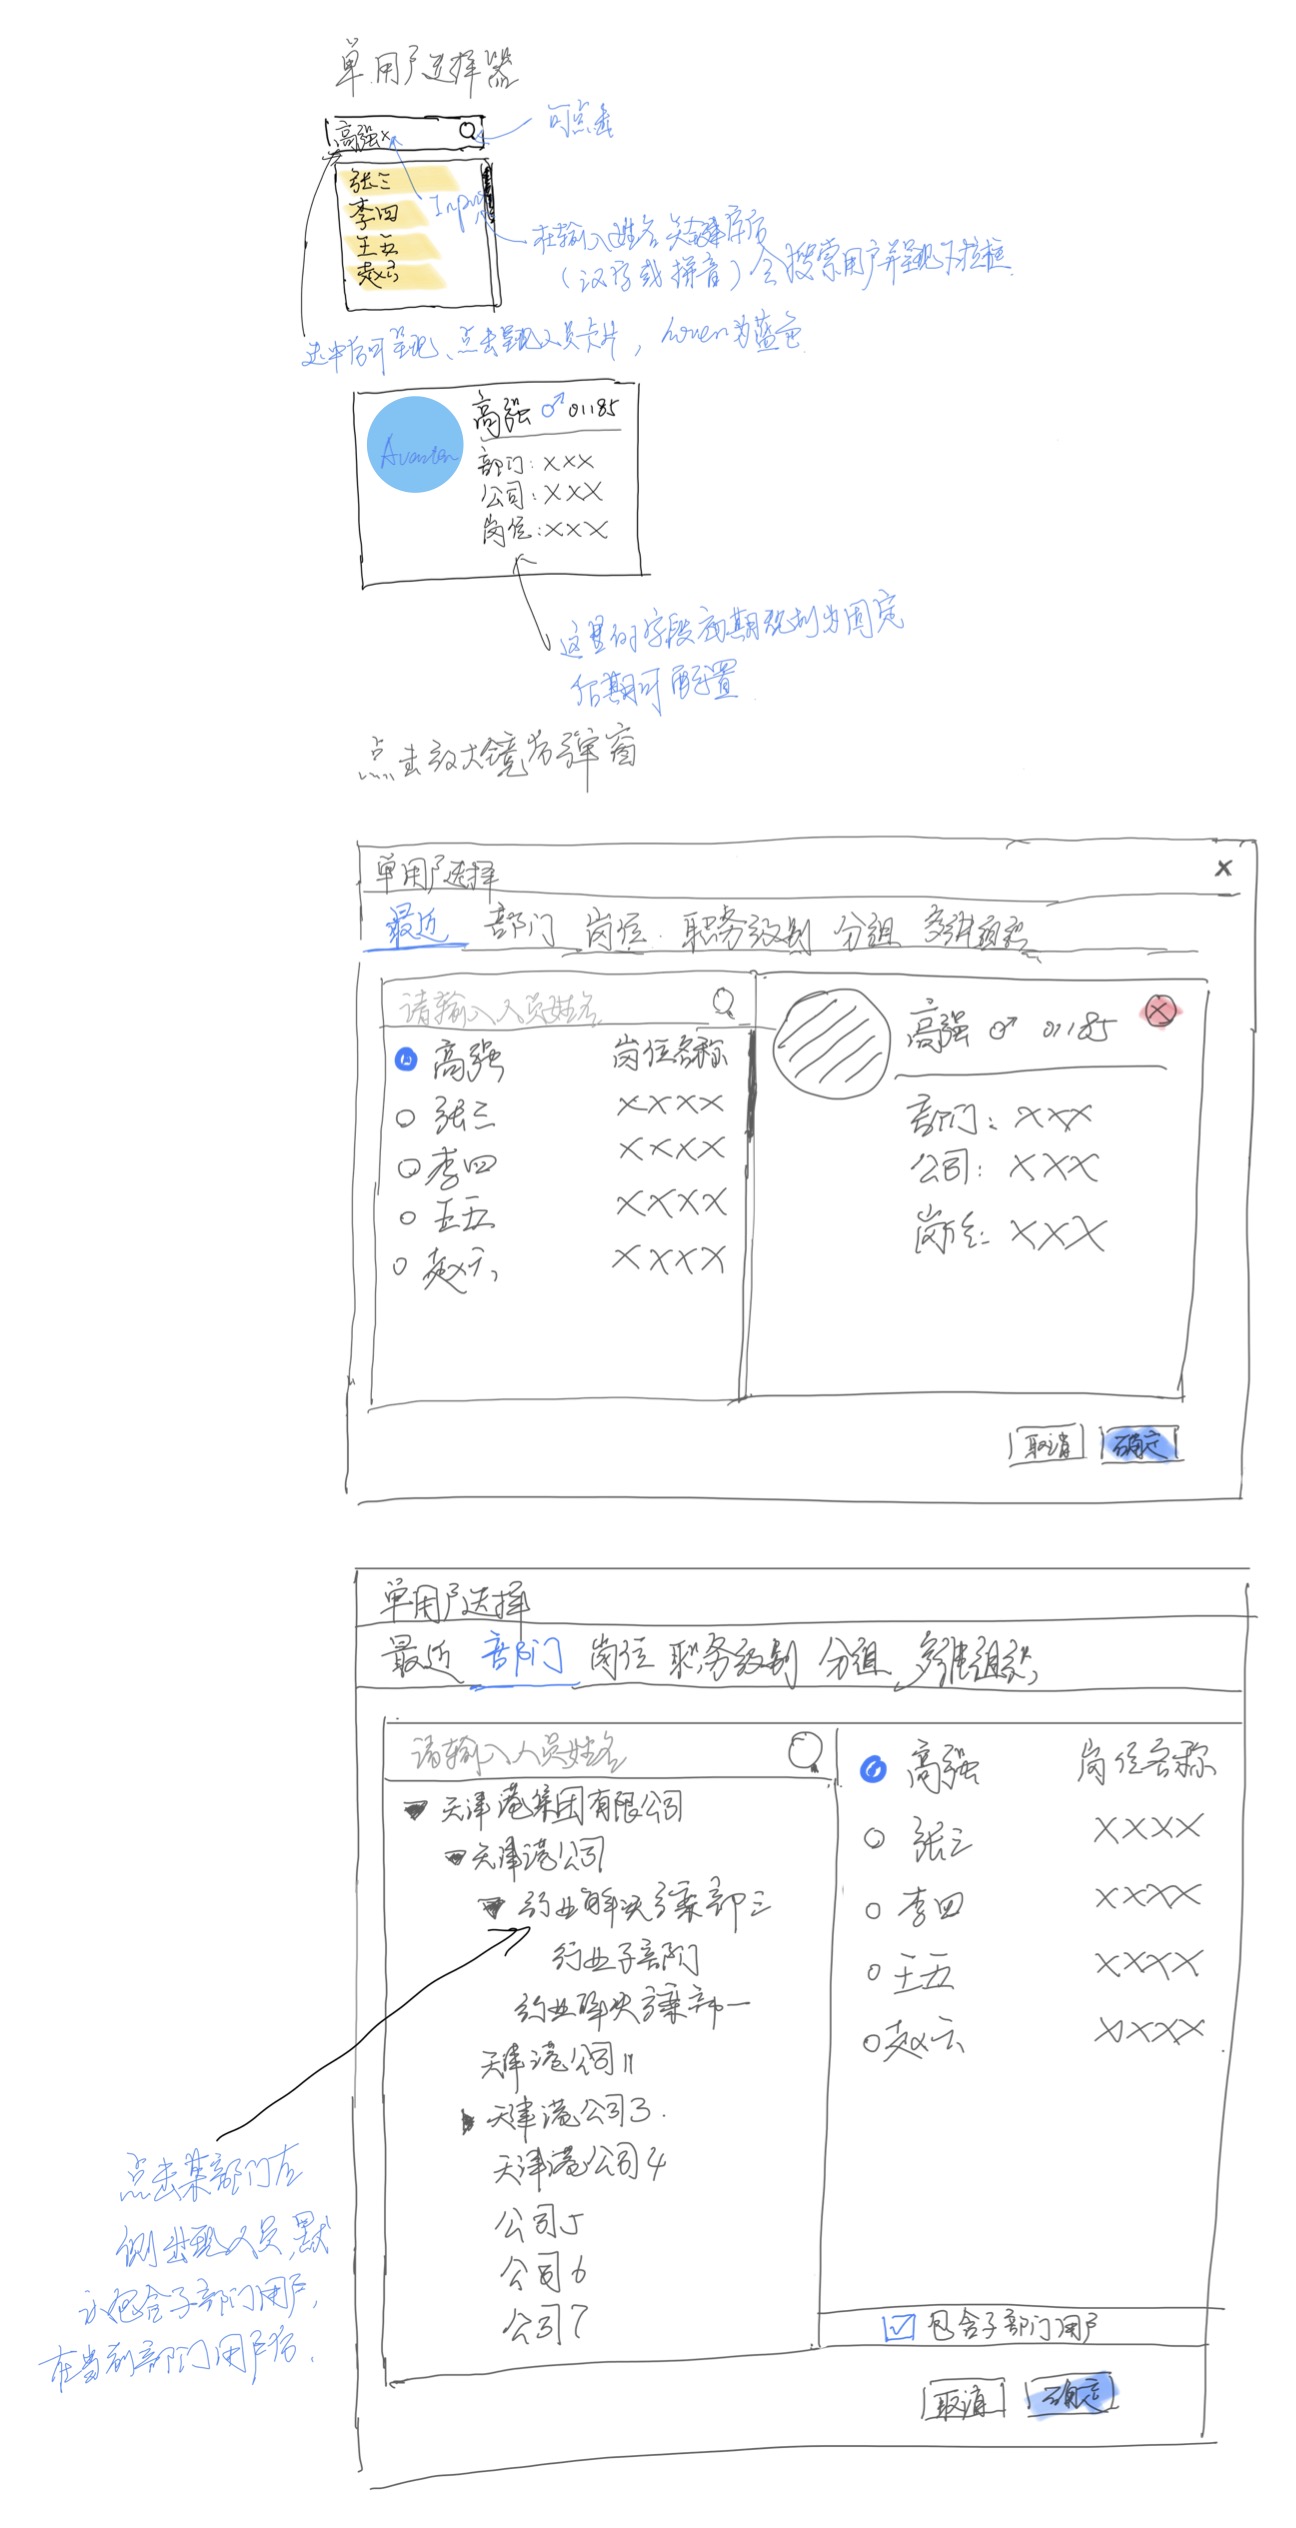 单用户选择器
高强x
可点击
张三
李四
王五
赵云
Input
在输入姓名关键字后
(汉字或拼音)会搜索用户并呈现下拉框
选中后可呈现、点击呈现人员卡片，hover为蓝色
Avatar
高强 ♂ 01185
部门：XXX
公司：XXX
岗位：XXX
这里的字段初期规划为固定
后期可配置
点击放大镜后弹窗
单用户选择 x
最近 部门 岗位 职务级别 分组 多维组织
请输入人员姓名
高强 岗位名称
张三 XXXX
李四 XXXX
王五 XXXX
赵云 XXXX
高强 ♂ 01185
部门：XXX
公司：XXX
岗位：XXX
取消 确定
单用户选择
最近 部门 岗位 职务级别 分组 多维组织
请输入人员姓名
天津港集团有限公司
天津港公司
行业解决方案部三
行业子部门
行业解决方案部一
天津港公司11
天津港公司3
天津港公司4
公司5
公司6
公司7
高强 岗位名称
张三 XXXX
李四 XXXX
王五 XXXX
赵云 XXXX
包含子部门用户
取消 确定
点击某部门左
侧出现人员，默
认包含子部门用户，
在当前部门用户后.